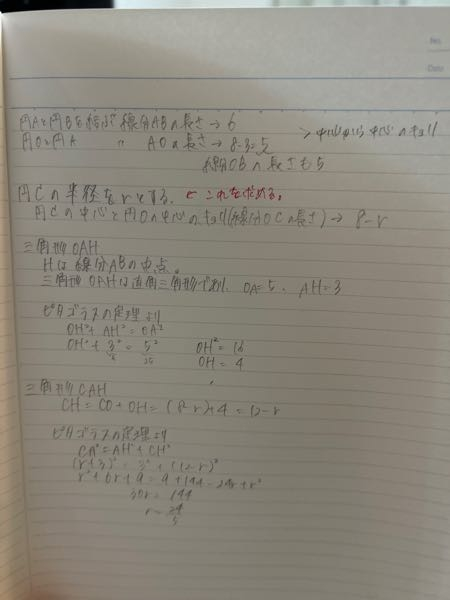 No.
Date
円Aと円Bを結ぶ線分ABの長さ→6
円Oと円A 〃 AOの長さ→8-3=5
線分OBの長さも5
円Cの半径をrとする。← これを求める。
円Cの中心と円Oの中心のキョリ(線分OCの長さ)→ 8-r
三角形OAH
Hは線分ABの中点。
三角形OAHは直角三角形であり、OA=5、AH=3
ピタゴラスの定理より
OH²+AH²=OA²
OH²+3²=5² OH²=16
9 25 OH=4
三角形CAH
CH=CO+OH=(8-r)+4=12-r
ピタゴラスの定理より
CA²=AH²+CH²
(r+3)²=3²+(12-r)²
r²+6r+9=9+144-24r+r²
30r=144
r=24/5